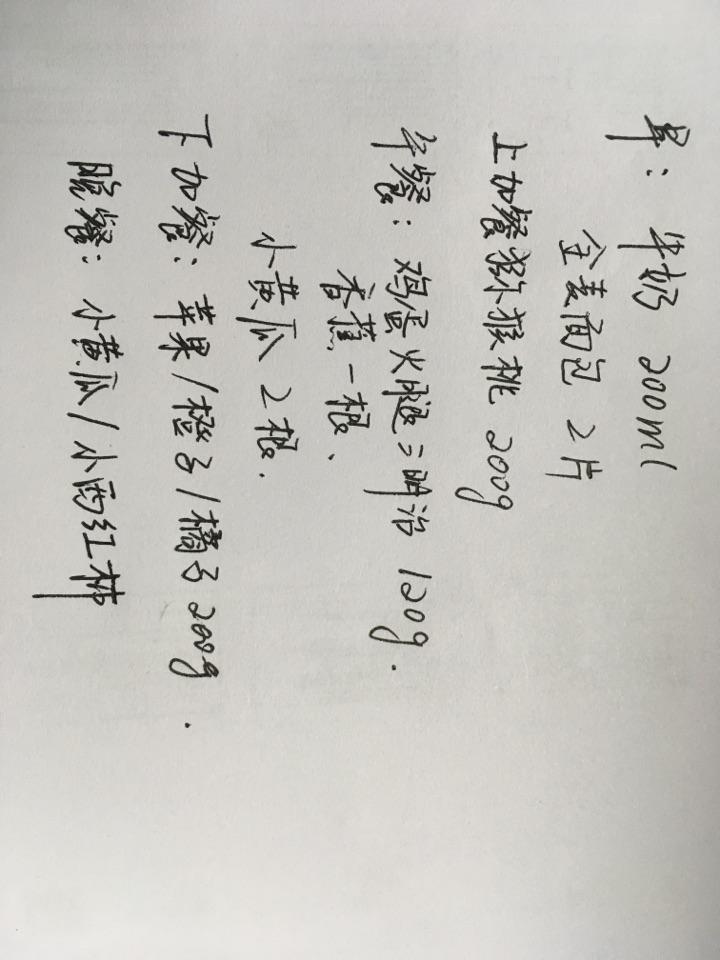 早：牛奶 200ml
全麦面包 2片
上加餐猕猴桃 200g
午餐：鸡蛋火腿三明治 120g.
香蕉一根、
小黄瓜 2根.
下加餐：苹果/橙子/橘子200g.
晚餐：小黄瓜/小西红柿